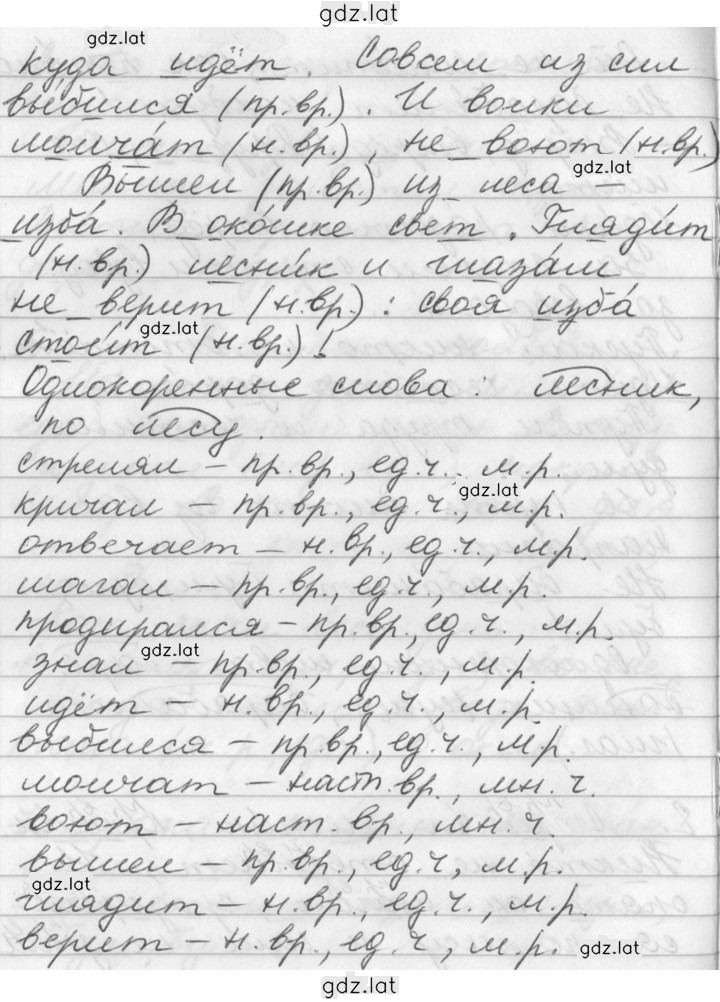 gdz.lat
gdz.lat
куда идёт. Совсем из сил
выбился (пр.вр.). И волки
молча́т (н.вр.), не воют (н.вр.)
gdz.lat
Вышел (пр.вр.) из леса –
изба́. В око́шке свет. Гляди́т
(н.вр.) лесни́к и глаза́м
не верит (н.вр.): своя изба́
gdz.lat
стои́т (н.вр.)!
Однокоренные слова: лесник,
по лесу.
стрелял – пр.вр., ед.ч., м.р.
gdz.lat
кричал – пр.вр., ед.ч., м.р.
отвечает – н.вр., ед.ч., м.р.
шагал – пр.вр., ед.ч., м.р.
продирался – пр.вр., ед.ч., м.р.
gdz.lat
знал – пр.вр., ед.ч., м.р.
идёт – н.вр., ед.ч., м.р.
выбился – пр.вр., ед.ч., м.р.
молчат – наст.вр., мн.ч.
воют – наст.вр., мн.ч.
вышел – пр.вр., ед.ч., м.р.
gdz.lat
глядит – н.вр., ед.ч., м.р.
верит – н.вр., ед.ч., м.р.
gdz.lat
gdz.lat